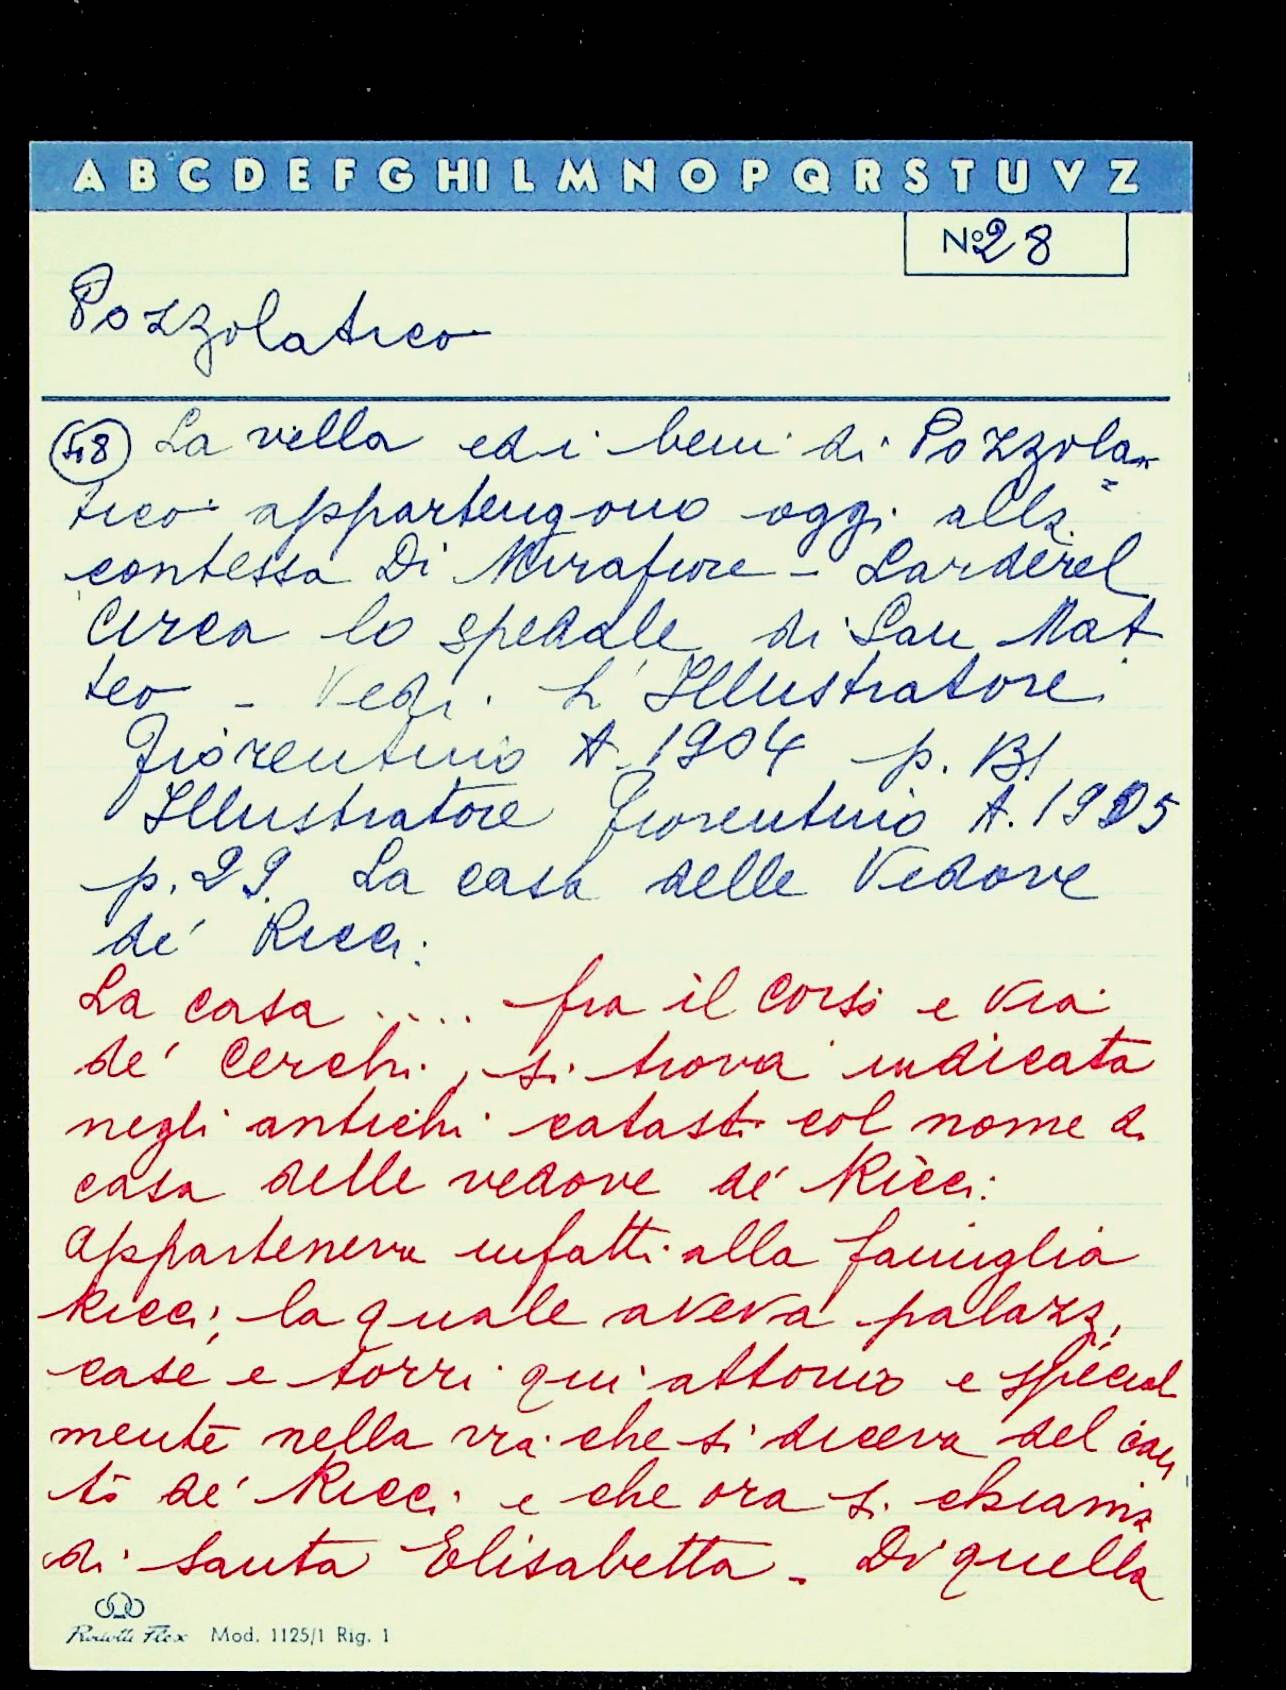 A B C D E F G H I L M N O P Q R S T U V Z
No 28
Pozzolatico
48 La villa ed i beni di Pozzola=
tico appartengono oggi alla
contessa Di Mirafiore - Larderel
Circa lo spedale di San Mat
teo - Vedi. L'Illustratore
Fiorentino A. 1904 p. 131
Illustratore Fiorentino A. 1905
p. 29. La casa delle Vedove
de' Ricci:
La casa .... fra il Corso e Via
de' Cerchi, si trova indicata
negli antichi catasti col nome di
casa delle vedove de' Ricci:
Apparteneva infatti alla famiglia
Ricci, la quale aveva palazzi,
case e torri qui attorno e special
mente nella via che si diceva del can
to de' Ricci e che ora si chiama
di Santa Elisabetta - Di quella
Mod. 1125/1 Rig. 1